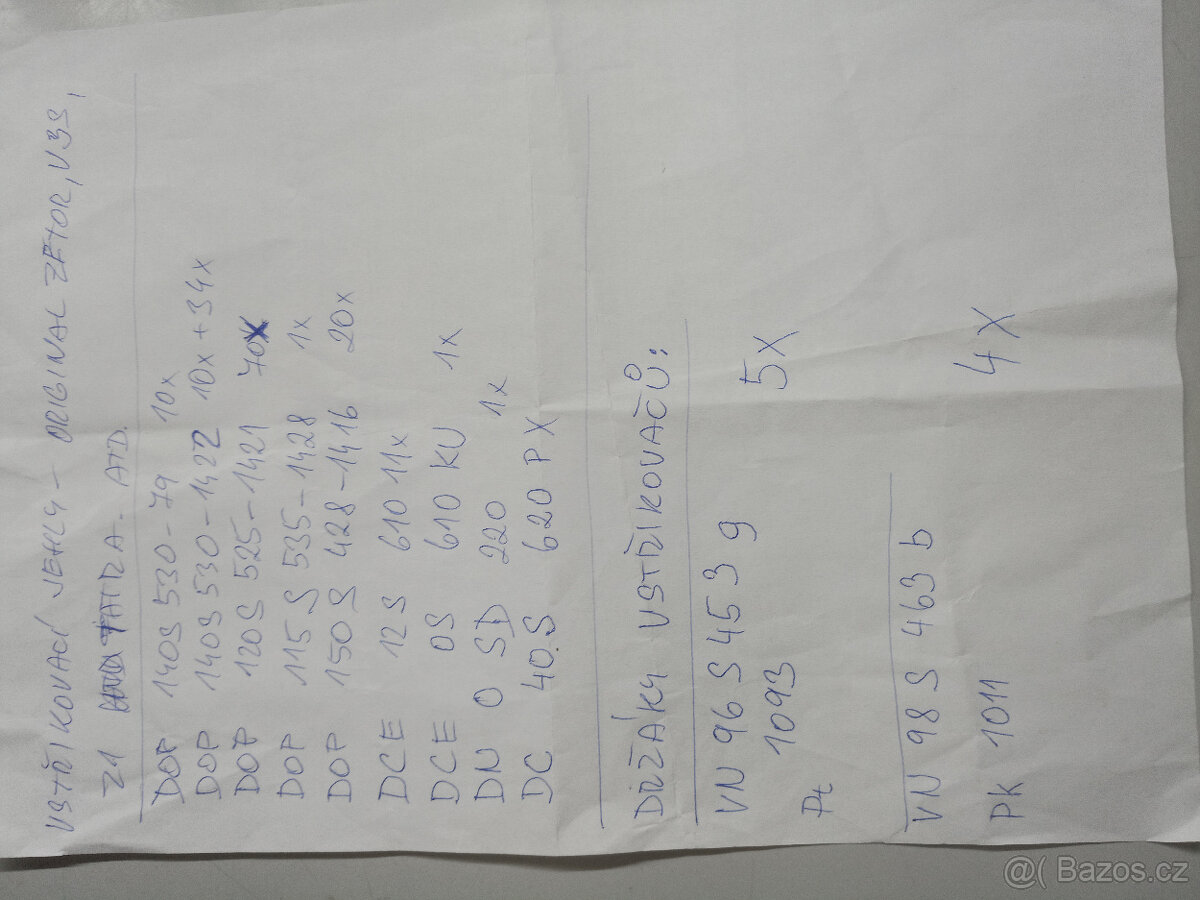 VSTŘIKOVACÍ JEHLY - ORIGINAL ZETOR, V3S,
Z1 TATRA. ATD.
DOP 140S 530-79 10x
DOP 140S 530-1422 10x + 34x
DOP 120S 525-1421 70x
DOP 115 S 535-1428 1x
DOP 150 S 428-1416 20x
DCE 12S 610 11x
DCE 0S 610 KU 1x
DN 0 SD 220 1x
DC 40.S 620 PX
DRŽÁKY VSTŘIKOVAČŮ:
VN 96 S 453 g 5x
1093
Pt
VN 98 S 463 b
PK 1011 4X
@( Bazos.cz